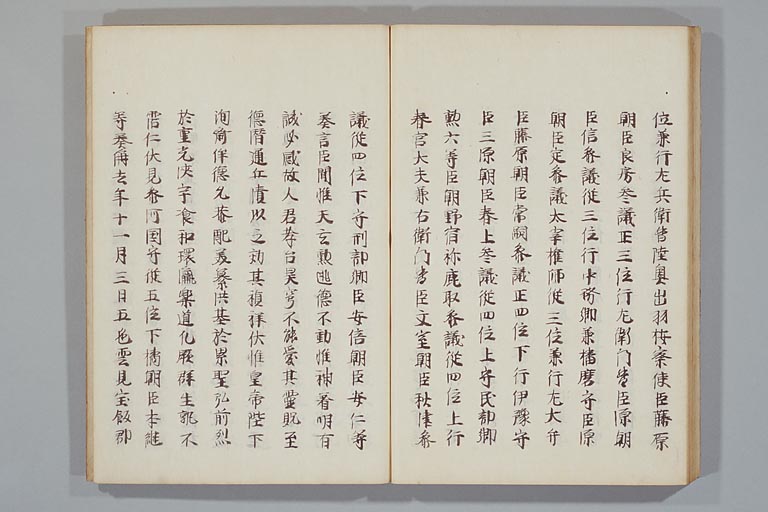 位兼行左兵衛督陸奥出羽按察使臣藤原
朝臣良房参議正三位行左衛門督臣源朝
臣信参議従三位行中務卿兼播磨守臣源
朝臣定参議太宰権帥従三位兼行左大弁
臣藤原朝臣常嗣参議正四位下行伊豫守
臣三原朝臣春上参議従四位上守民部卿
勲六等臣朝野宿祢鹿取参議従四位上行
春宮大夫兼右衛門督臣文室朝臣秋津参
議従四位下守刑部卿臣安倍朝臣安仁等
奏言臣聞惟天玄默逃德不動惟神著明有
誠必感故人君孝台昊穹不能愛其靈貺至
德潛通丘墳以之効其複祥伏惟皇帝陛下
洵齊倂德允答配夏纂洪基於累聖弘前烈
於重光浹宇飡和環瀛樂道化脤群生孰不
霑仁伏見参河國守従五位下橘朝臣本継
等奏偁去年十一月三日五色雲見宝飯郡